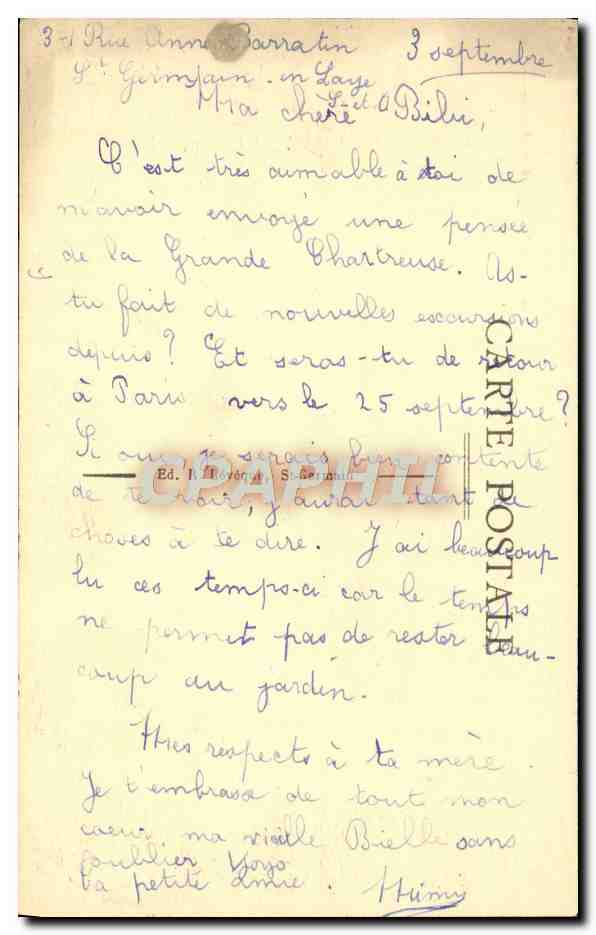 3 Rue Anne Barratin 3 septembre
St Germain-en Laye
S.-et O
Ma chère Bibi,
C'est très aimable à toi de
m'avoir envoyé une pensée
de la Grande Chartreuse. As-
tu fait de nouvelles excursions
depuis ? Et seras-tu de retour
à Paris vers le 25 septembre ?
Si oui, je serais bien contente
de te voir, j'aurai tant de
choses à te dire. J'ai beaucoup
lu ces temps-ci car le temps
ne permet pas de rester beau-
coup au jardin.
Mes respects à ta mère.
Je t'embrasse de tout mon
coeur ma vieille Bielle sans
oublier Yoyo
ta petite amie. Mimi
CARTE POSTALE
Ed. Lévêque, St-Germain
CPAPHIL